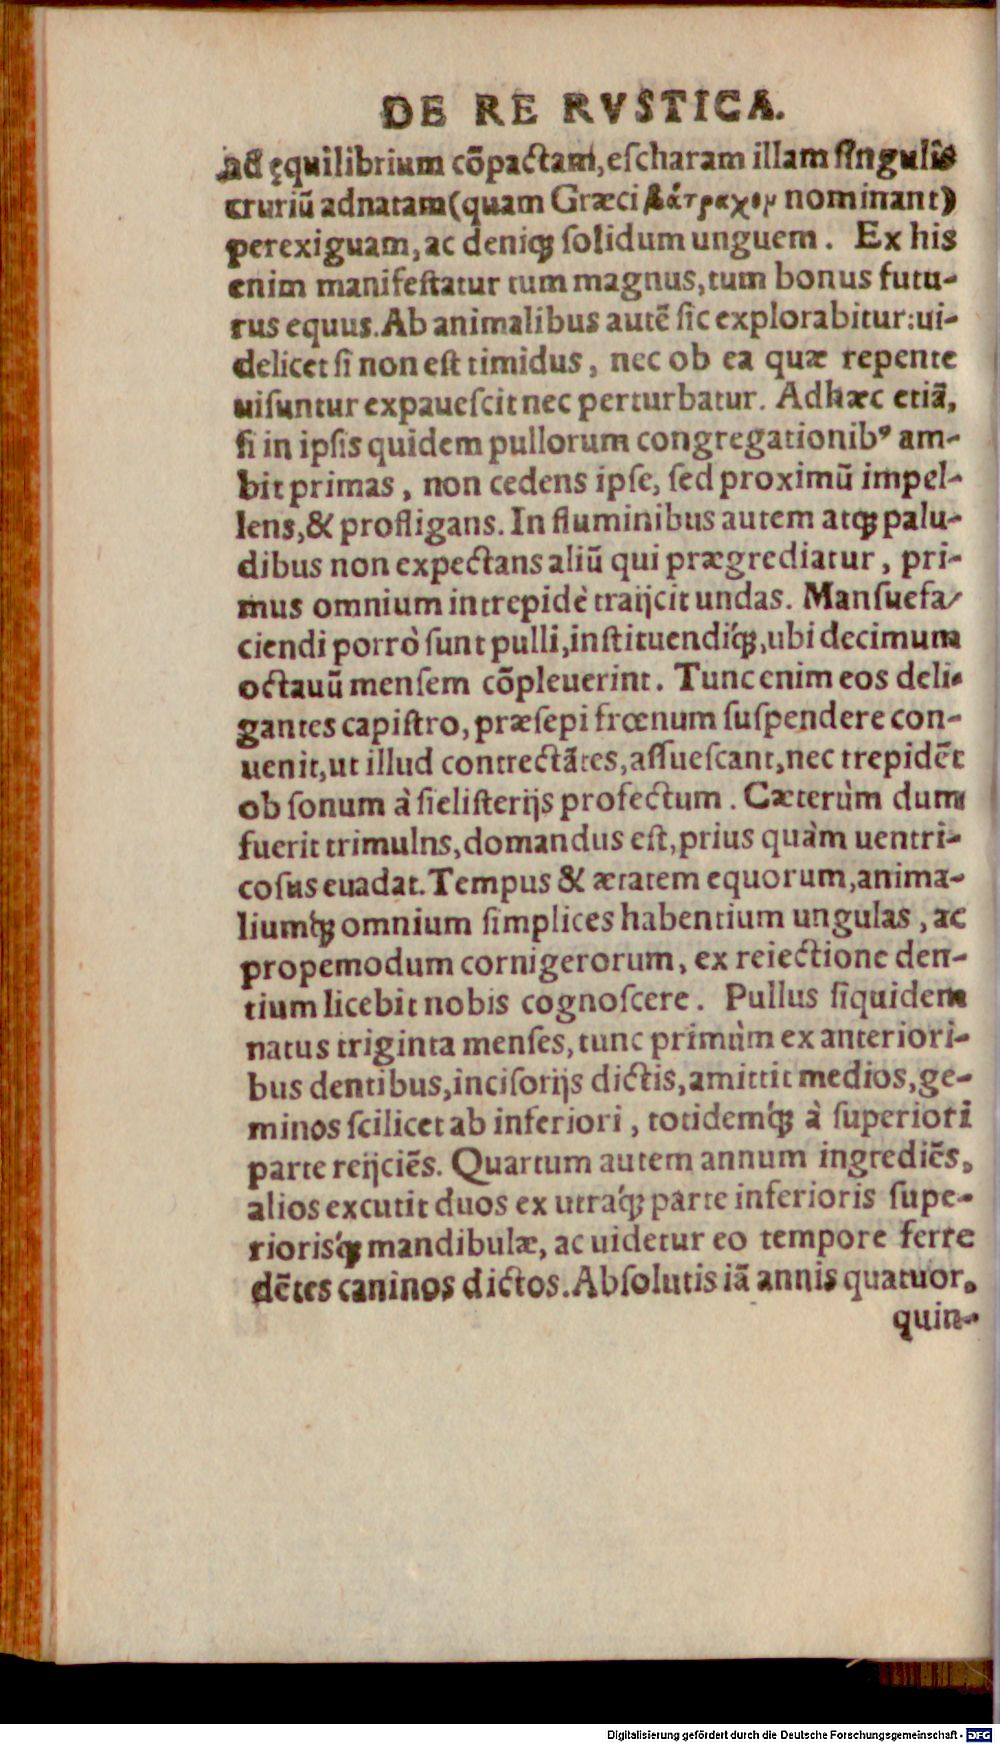 DE RE RVSTICA.
ad ęquilibrium cōpactam, eſcharam illam ſingulis
cruriū adnatam (quam Græci βάτραχον nominant)
perexiguam, ac deniqꝫ ſolidum unguem. Ex his
enim manifeſtatur tum magnus, tum bonus futu-
rus equus. Ab animalibus autē ſic explorabitur: ui-
delicet ſi non eſt timidus, nec ob ea quæ repente
uiſuntur expaueſcit nec perturbatur. Adhæc etiā,
ſi in ipſis quidem pullorum congregationibꝰ am-
bit primas, non cedens ipſe, ſed proximū impel-
lens, & profligans. In fluminibus autem atqꝫ palu-
dibus non expectans aliū qui prægrediatur, pri-
mus omnium intrepidè traijcit undas. Manſuefa-
ciendi porrò ſunt pulli, inſtituendiq́ꝫ, ubi decimum
octauū menſem cōpleuerint. Tunc enim eos deli-
gantes capiſtro, præſepi frœnum ſuſpendere con-
uenit, ut illud contrectātes, aſſueſcant, nec trepidēt
ob ſonum à ſieliſterijs profectum. Cæterùm dum
fuerit trimulns, domandus eſt, prius quàm uentri-
coſus euadat. Tempus & ætatem equorum, anima-
liumq́ꝫ omnium ſimplices habentium ungulas, ac
propemodum cornigerorum, ex reiectione den-
tium licebit nobis cognoſcere. Pullus ſiquidem
natus triginta menſes, tunc primùm ex anteriori-
bus dentibus, inciſorijs dictis, amittit medios, ge-
minos ſcilicet ab inferiori, totidemq́ꝫ à ſuperiori
parte reijciēs. Quartum autem annum ingrediēs,
alios excutit duos ex utraq́ꝫ parte inferioris ſupe-
riorisq́ꝫ mandibulæ, ac uidetur eo tempore ferre
dētes caninos dictos. Abſolutis iā annis quatuor,
quin-
Digitalisierung gefördert durch die Deutsche Forschungsgemeinschaft - DFG